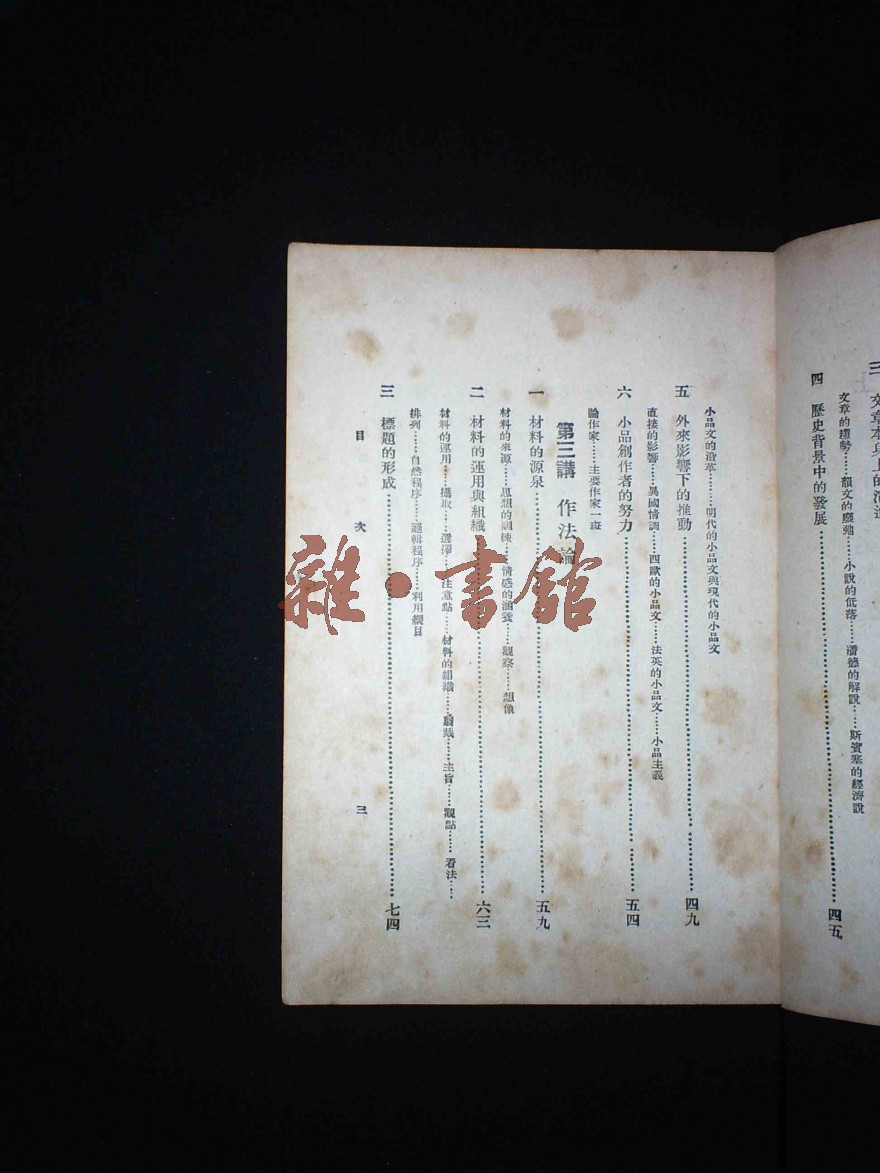 三 文章本身上的演進
文章的趨勢……韻文的廢弛……小說的低落……潘德的解說……斯賓塞的經濟說
四 歷史背景中的發展……四五
小品文的沿革……明代的小品文與現代的小品文
五 外來影響下的推動……四九
直接的影響……異國情調……西歐的小品文……法英的小品文……小品主義
六 小品創作者的努力……五四
論作家……主要作家一斑
第三講 作法論
一 材料的源泉……五九
材料的來源……思想的訓練……情感的涵養……觀察……想像
二 材料的運用與組織……六三
材料的運用……攝取……選擇……注意點……材料的組織……剪裁……主旨……觀點……看法……
排列……自然程序……邏輯程序……利用綱目
三 標題的形成……七四
目次 三
雜·書館